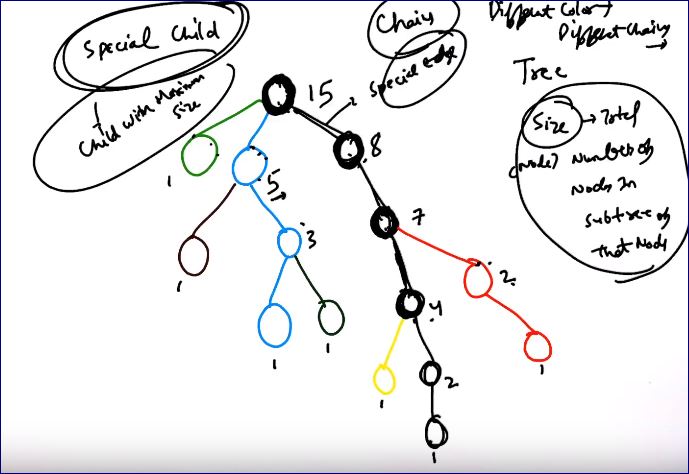 Special Child
Child with Maximum
size
Chains
special edge
Different Color →
Different Chains
→
Tree
Size → Total
(node) Number of
nodes in
subtree of
that Node
15
8
1
5
7
3
2
1
4
1
1
1
1
2
1